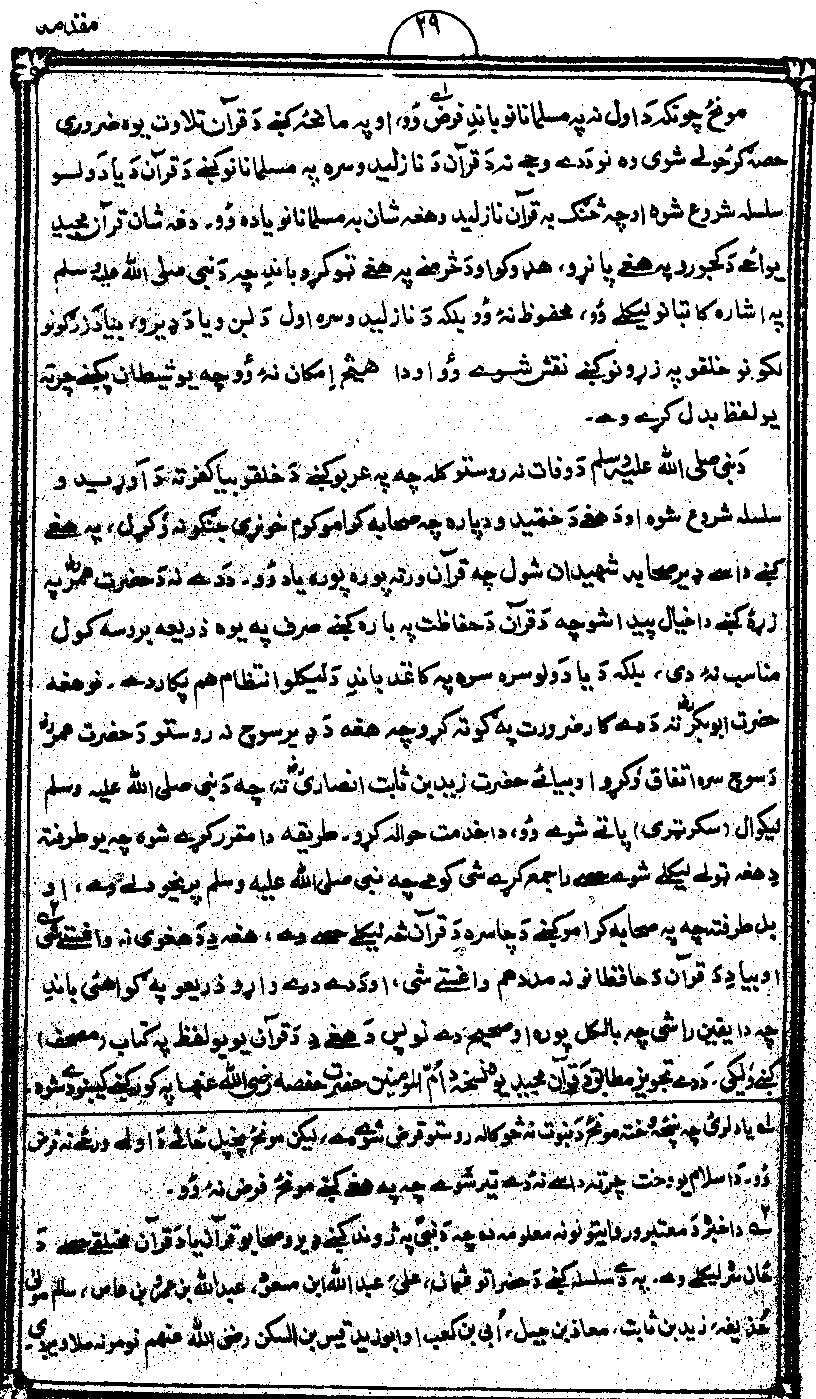 مقدمہ
۲۹
مونځ چونکه د اول نه په مسلمانانو باندِ فرض وُو، او په مانځه کښے د قرآن تلاوت يوه ضروری
حصه ګرځولے شوی وه نو د دے وجے نه د قرآن د نازليدو سره په مسلمانانو کښے د قرآن د يادولو
سلسله شروع شوه او چه څنګ به قرآن نازليد و هغه شان به مسلمانانو يادوُو۔ دغه شان قرآن مجيد
يوائے د کجورو په هغے پانړو، هډوکو او د څرمنے په هغے ټوکړو باندِ چه د نبی صلی الله عليه وسلم
په اشاره کاتبانو ليکلے وُو، محفوظ نۀ وُو بلکه د نازليدو سره اول د لسو بيا د ډيرو، بيا د زرګونو
لکونو خلقو په زړونو کښے نقش شوے وُو او دا هيڅ اِمکان نۀ وُو چه يو شيطان پکښے چرته
يو لفظ بدل کړے وے۔
د نبی صلی الله عليه وسلم د وفات نه روستو کله چه په عربو کښے د خلقو بيا کفر ته د آوړيدو
سلسله شروع شوه او د هغے د ختميدو دپاره چه صحابه کرامو کوم خونړی جنګونه وُکړل، په هغے
کښے داسے ډير صحابه شهيدان شول چه قرآن ورته پوره پوره ياد وُو۔ د دے نه د حضرت عمرؓ په
زړۀ کښے دا خيال پيدا شو چه د قرآن د حفاظت په باره کښے صرف په يوه ذريعه بروسه کول
مناسب نۀ دی، بلکه د يادولو سره سره په کاغذ باندِ د ليکلو انتظام هم پکار دے۔ نو هغه
حضرت ابوبکرؓ ته د دے کار ضرورت په ګوته کړو چه هغه د ډير سوچ نه روستو د حضرت عمرؓ
د سوچ سره اتفاق وُکړو او بيائے حضرت زيد بن ثابت انصاریؓ ته، چه د نبی صلی الله عليه وسلم
ليکوال (سکرټری) پاتے شوے وُو، دا خدمت حواله کړو۔ طريقه دا مقرر کړے شوه چه يو طرف ته
دِ هغه ټولے ليکلے شوے حصے راجمع کړے شی کومے چه نبی صلی الله عليه وسلم پريخودلے وے، او
بل طرف ته چه په صحابه کرامو کښے د چا سره د قرآن څه ليکلے حصے وے، هغه دِ د هغوی نه واغستے شی
او بيا دِ د قرآن د حافظانو نه مدد هم واغستے شی، او د دے درے واړو ذريعو په ګواهئی باندِ
چه دا يقين راشی چه بالکل پوره او صحيح دے نو پس د هغے دِ د قرآن يو يو لفظ په کتاب (مصحف)
کښے وُليکی۔ د دے تجويز مطابق د قرآن مجيد يوه نسخه د اُمّ المؤمنين حضرت حفصه رضی الله عنها په کور کښے کيښودے شوه
لے ياد لری چه پنځۀ وخته مونځ د نبوت نه څو کاله روستو فرض شوے دے، ليکن مونځ پخپل ځائے د اولے ورځے نه فرض
وُو۔ د اسلام يو وخت چرته داسے نۀ دے تير شوے چه په هغے کښے مونځ فرض نۀ وُو۔
۲ے دا خبرۀ د معتبرو روايتونو نه معلومه ده چه د نبیؐ په ژوند کښے ډيرو صحابو قرآن يا د قرآن مختلفے حصے د
ځان سره ليکلے وے۔ په دے سلسله کښے د حضراتو عثمان، علی، عبد الله ابن مسعود، عبد الله بن عمرو بن عاص، سالم مولی
حُذيفه، زيد بن ثابت، معاذ بن جبل، اُبی بن کعب او ابو زيد قيس بن السکن رضی الله عنهم نومونه ملاويږی۔